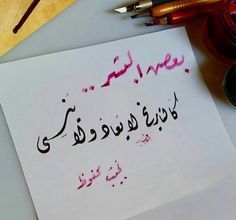 بعض البشر ..
كالتاريخ لا يعاد ولا ينسى
نجيب محفوظ